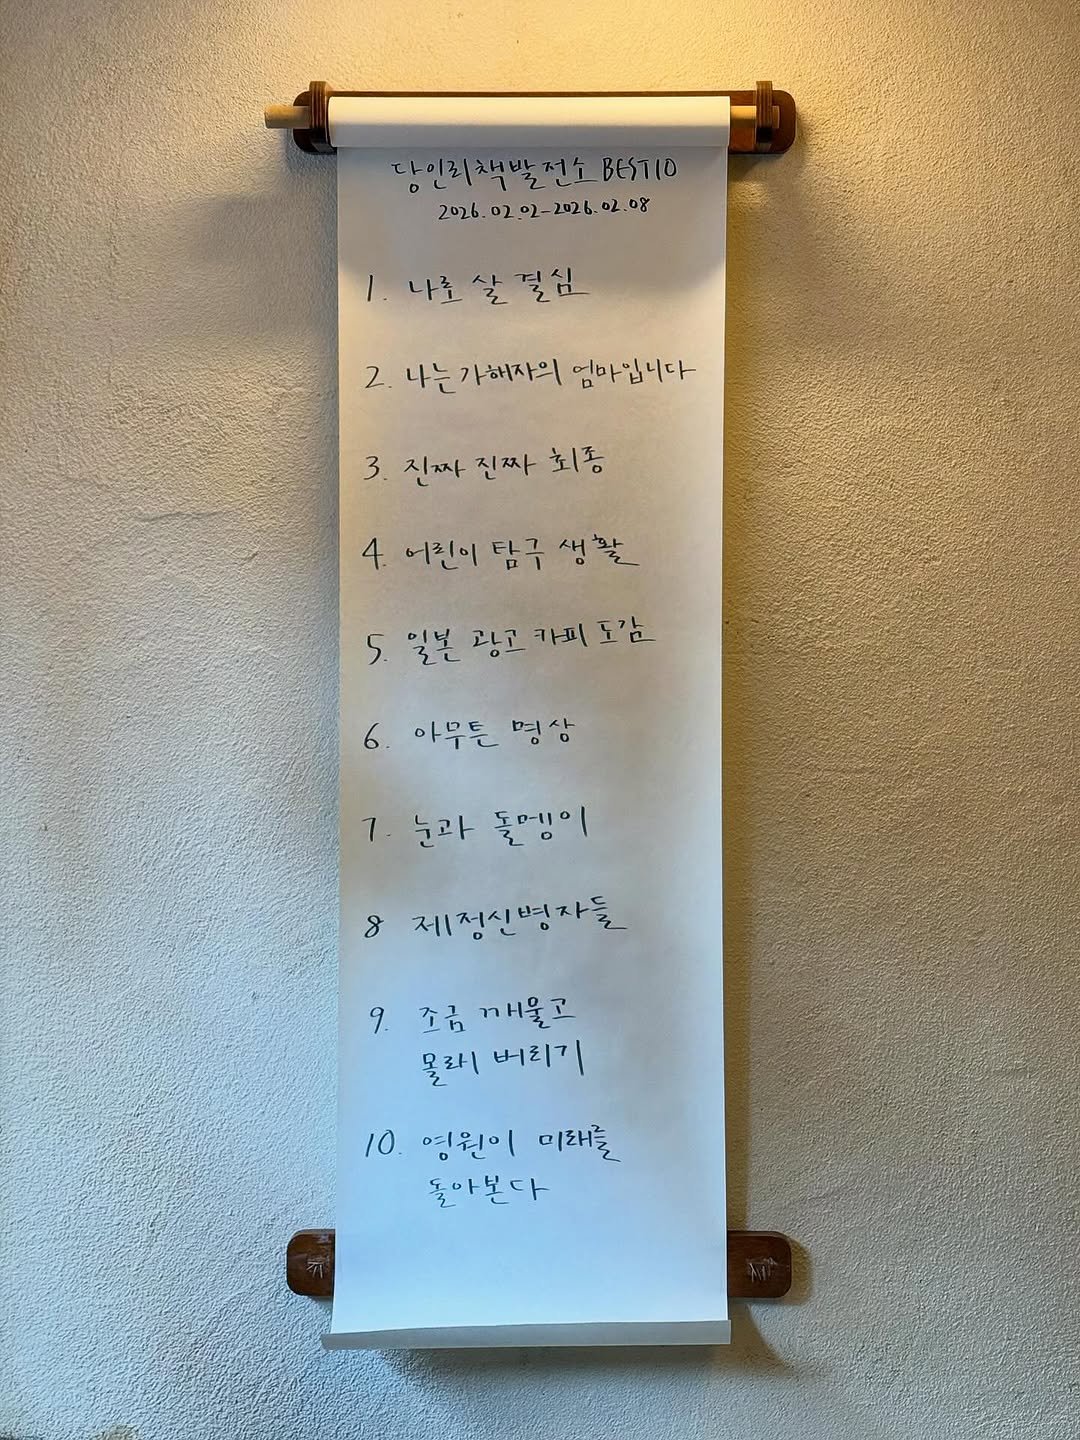 당인리책발전소 BEST10
2026.02.02-2026.02.08
1. 나로 살 결심
2. 나는 가해자의 엄마입니다
3. 진짜 진짜 최종
4. 어린이 탐구 생활
5. 일본 광고 카피 도감
6. 아무튼 명상
7. 눈과 돌멩이
8 제정신병자들
9. 조금 깨울고
몰래 버리기
10. 영원이 미래를
돌아본다